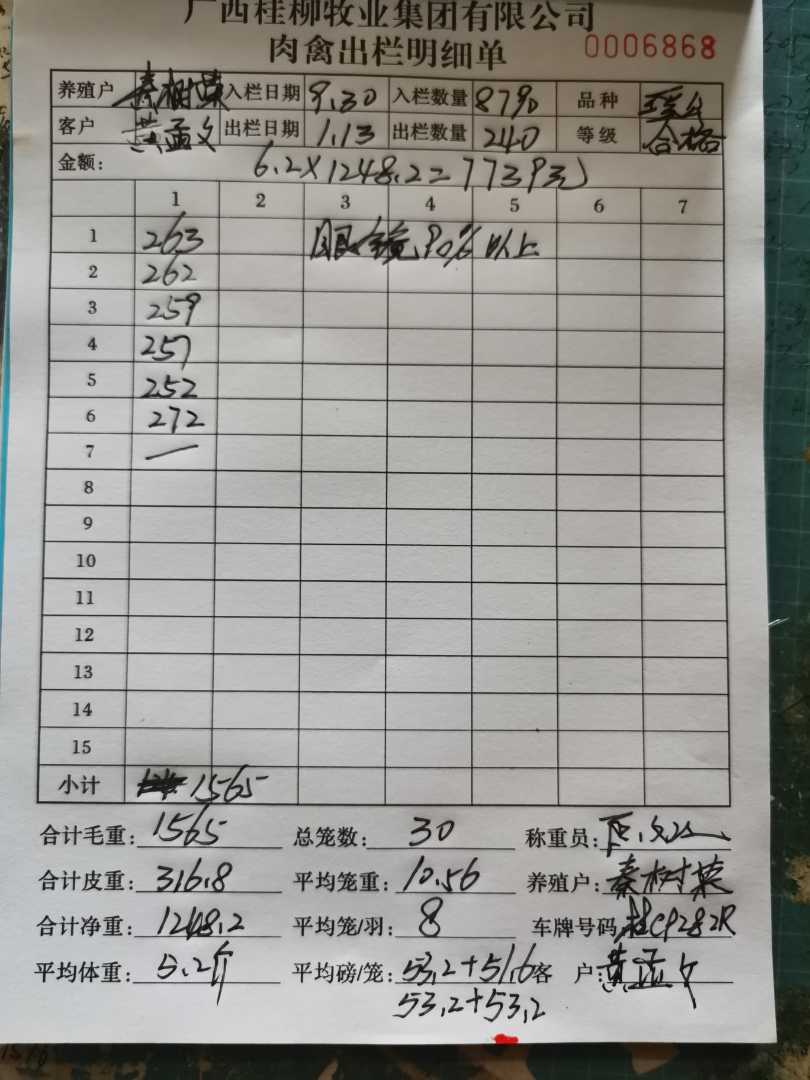 广西桂柳牧业集团有限公司
肉禽出栏明细单 0006868
养殖户 秦树荣 入栏日期 9.30 入栏数量 8790 品种
客户 黄孟文 出栏日期 1.13 出栏数量 240 等级 合格
金额: 6.2×1248.2=7739元
1 2 3 4 5 6 7
1 263 眼镜90%以上
2 262
3 259
4 257
5 252
6 272
7 —
8
9
10
11
12
13
14
15
小计 1565
合计毛重: 1565 总笼数: 30 称重员:
合计皮重: 316.8 平均笼重: 10.56 养殖户: 秦树荣
合计净重: 1248.2 平均笼/羽: 8 车牌号码 桂CP282R
平均体重: 5.2斤 平均磅/笼: 53.2+51.6 客 户: 黄孟文
53.2+53.2